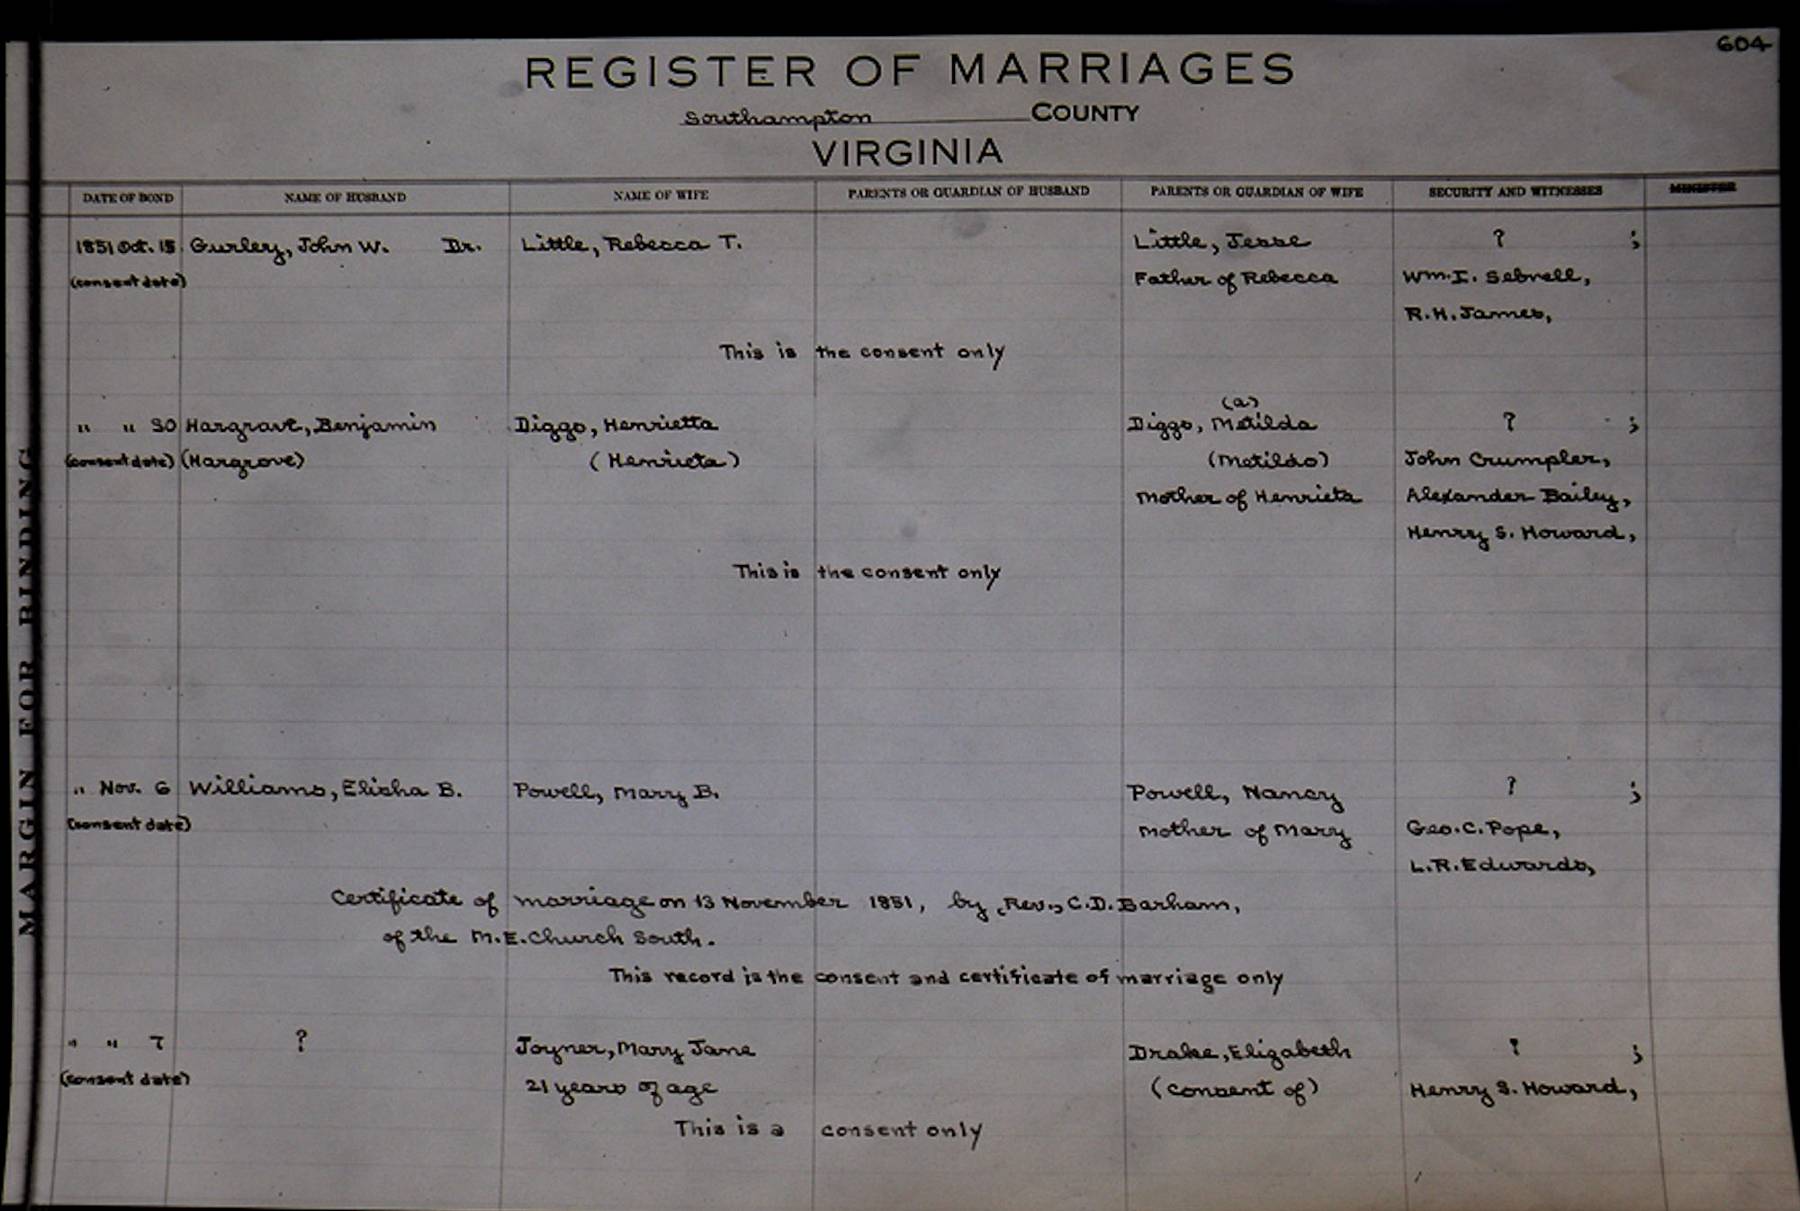 604
REGISTER OF MARRIAGES
Southampton COUNTY
VIRGINIA
DATE OF BOND NAME OF HUSBAND NAME OF WIFE PARENTS OR GUARDIAN OF HUSBAND PARENTS OR GUARDIAN OF WIFE SECURITY AND WITNESSES MINISTER
1851 Oct. 15 Gurley, John W. Dr. Little, Rebecca T. Little, Jesse ? ;
(consent date) Father of Rebecca Wm. I. Sebrell,
R.H. James,
This is the consent only
(a)
" " 30 Hargrave, Benjamin Diggs, Henrietta Diggs, Metilda ? ;
(consent date) (Hargrove) (Henrieta) (Metildo) John Crumpler,
Mother of Henrieta Alexander Bailey,
Henry S. Howard,
This is the consent only
" Nov. 6 Williams, Elisha B. Powell, Mary B. Powell, Nancy ? ;
(consent date) Mother of Mary Geo. C. Pope,
L.R. Edwards,
Certificate of marriage on 13 November 1851, by (Rev.) C.D. Barham,
of the M.E. Church South.
This record is the consent and certificate of marriage only
" " 7 ? Joyner, Mary Jane Drake, Elizabeth ? ;
(consent date) 21 years of age (consent of) Henry S. Howard,
This is a consent only
MARGIN FOR BINDING